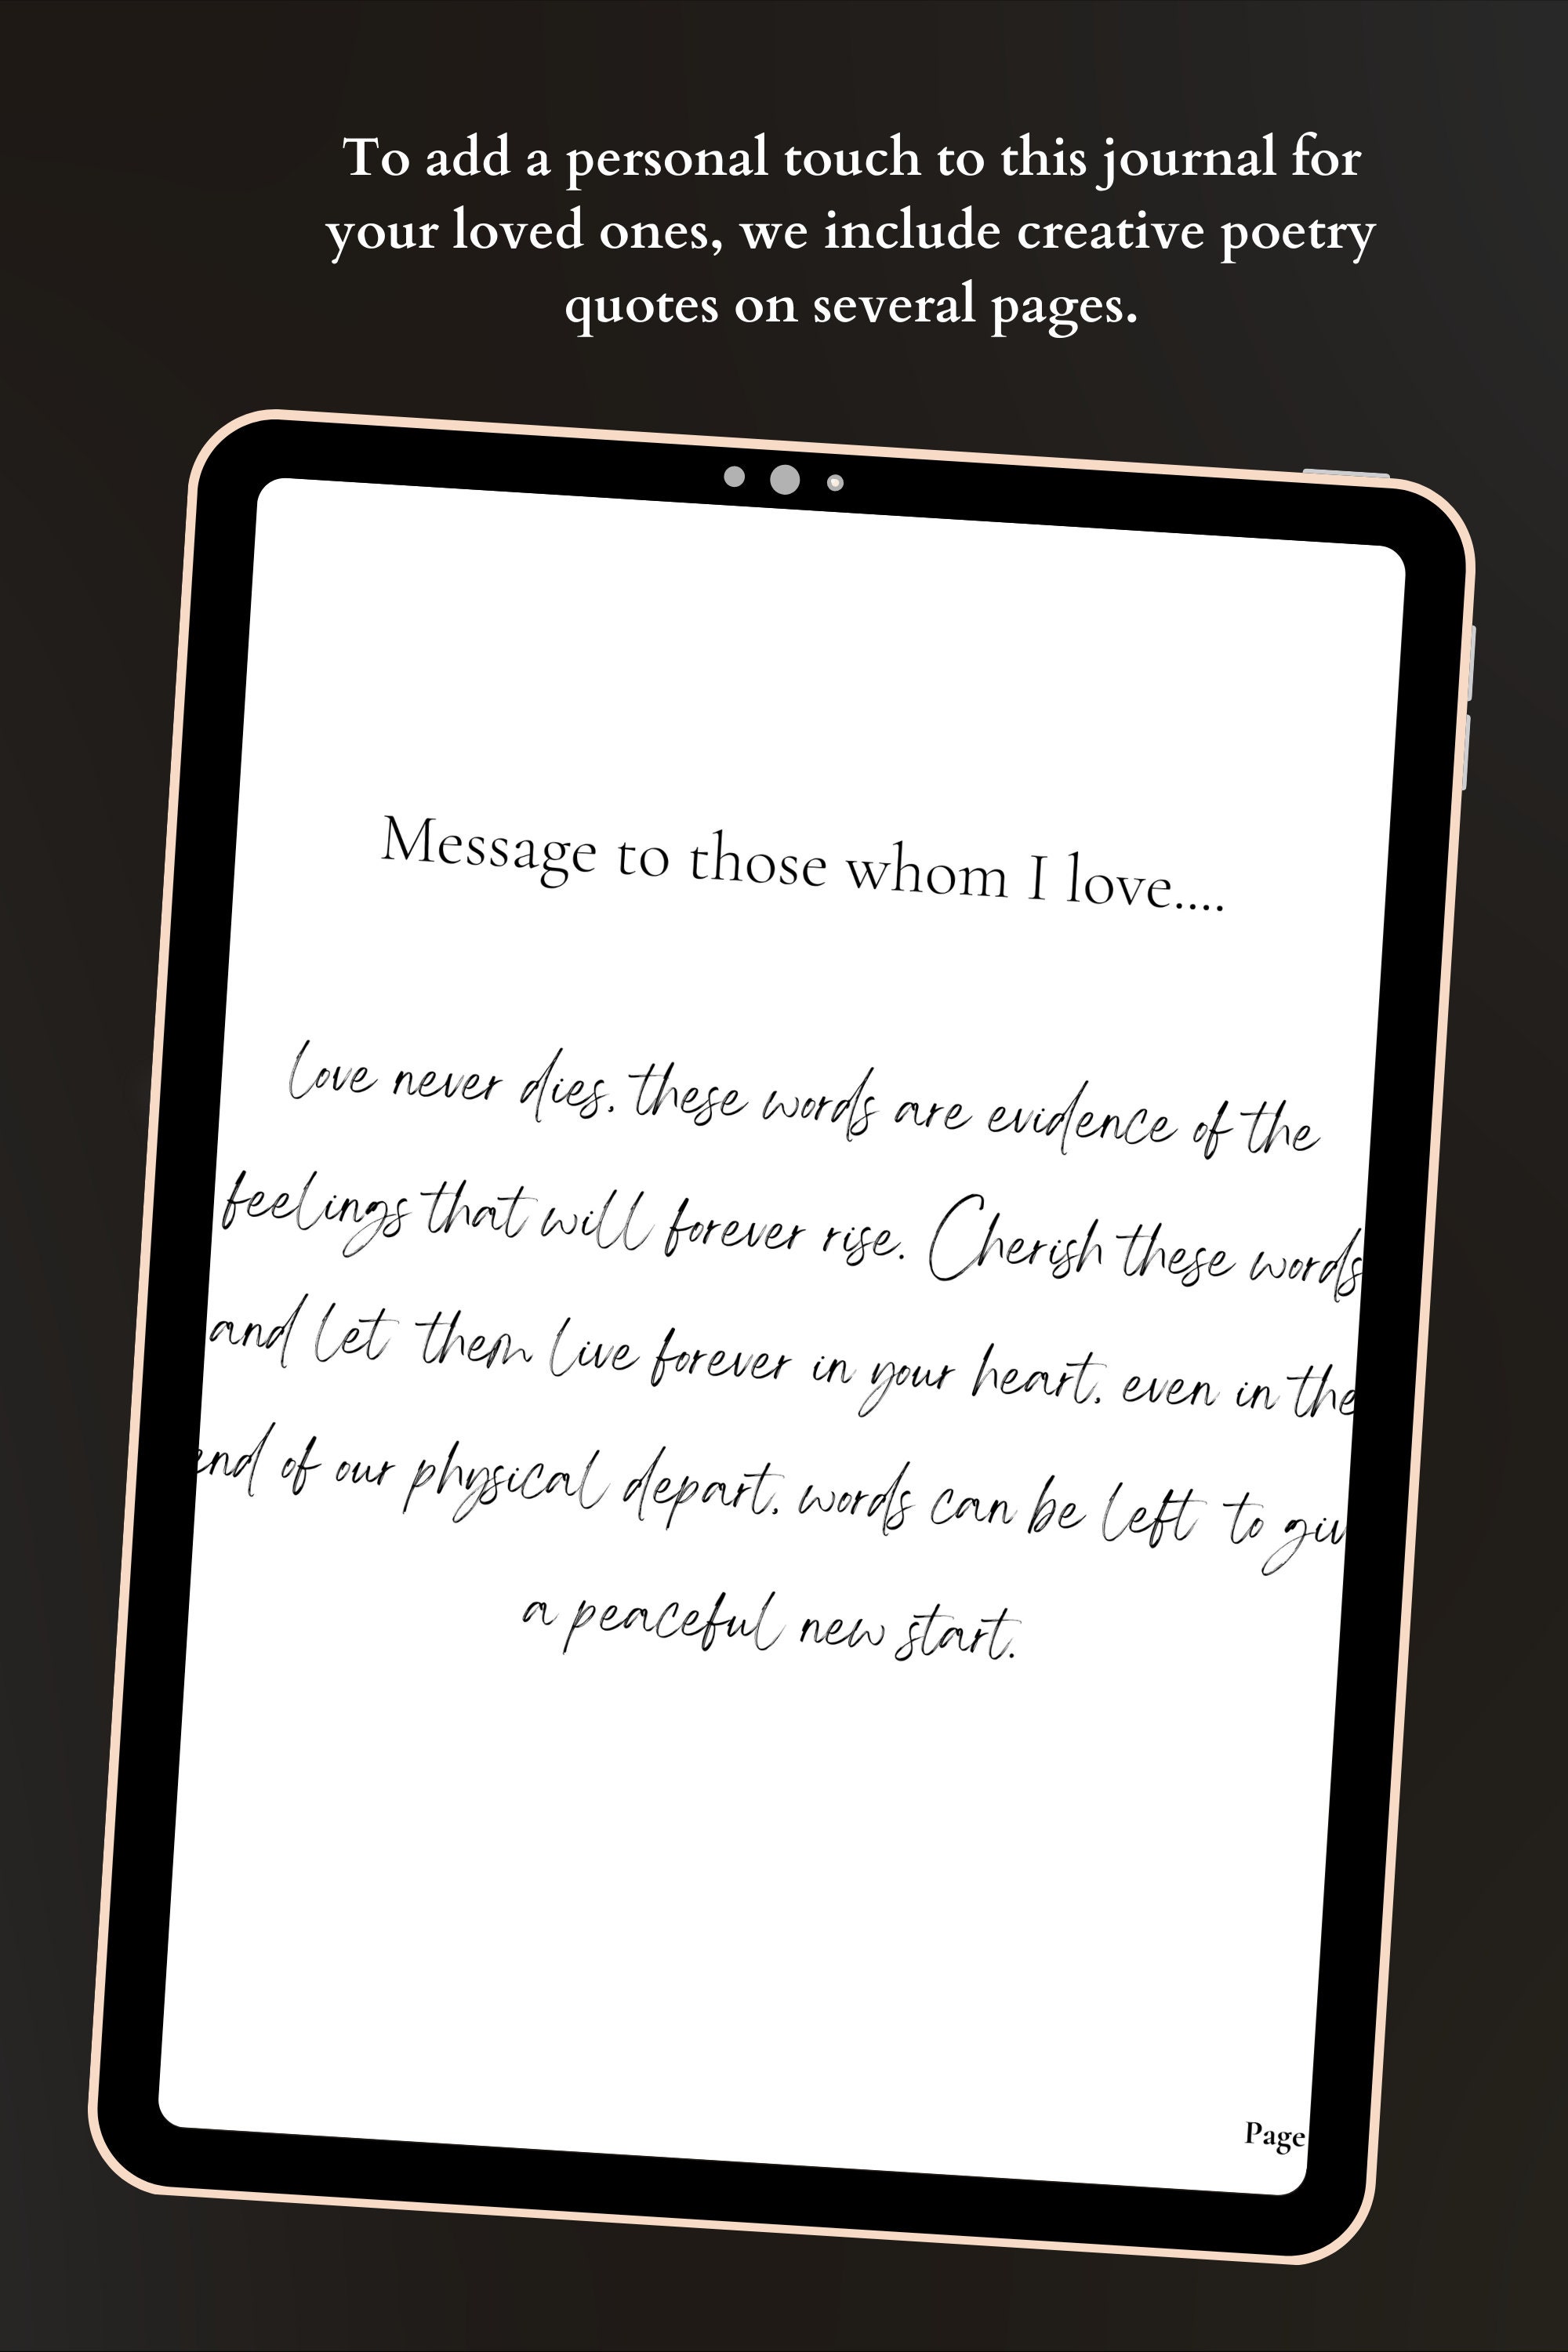 To add a personal touch to this journal for
your loved ones, we include creative poetry
quotes on several pages.
Message to those whom I love....
love never dies, these words are evidence of the
feelings that will forever rise. Cherish these words
and let them live forever in your heart, even in the
end of our physical depart, words can be left to giv
a peaceful new start.
Page